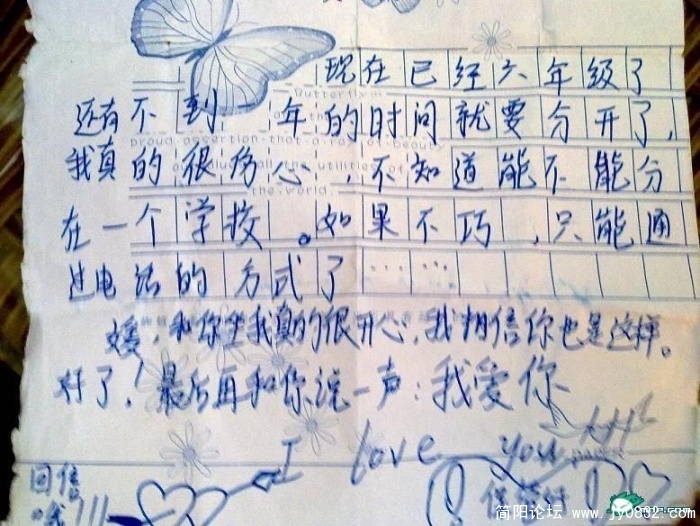 现在已经六年级了
还有不到一年的时间就要分开了,
我真的很伤心,不知道能不能分
在一个学校。如果不巧,只能通
过电话的方式了……
媛,和你坐我真的很开心,我相信你也是这样。
好了!最后再和你说一声:我爱你
I love you
回信
哦!!!
简阳论坛 www.jy0832.com